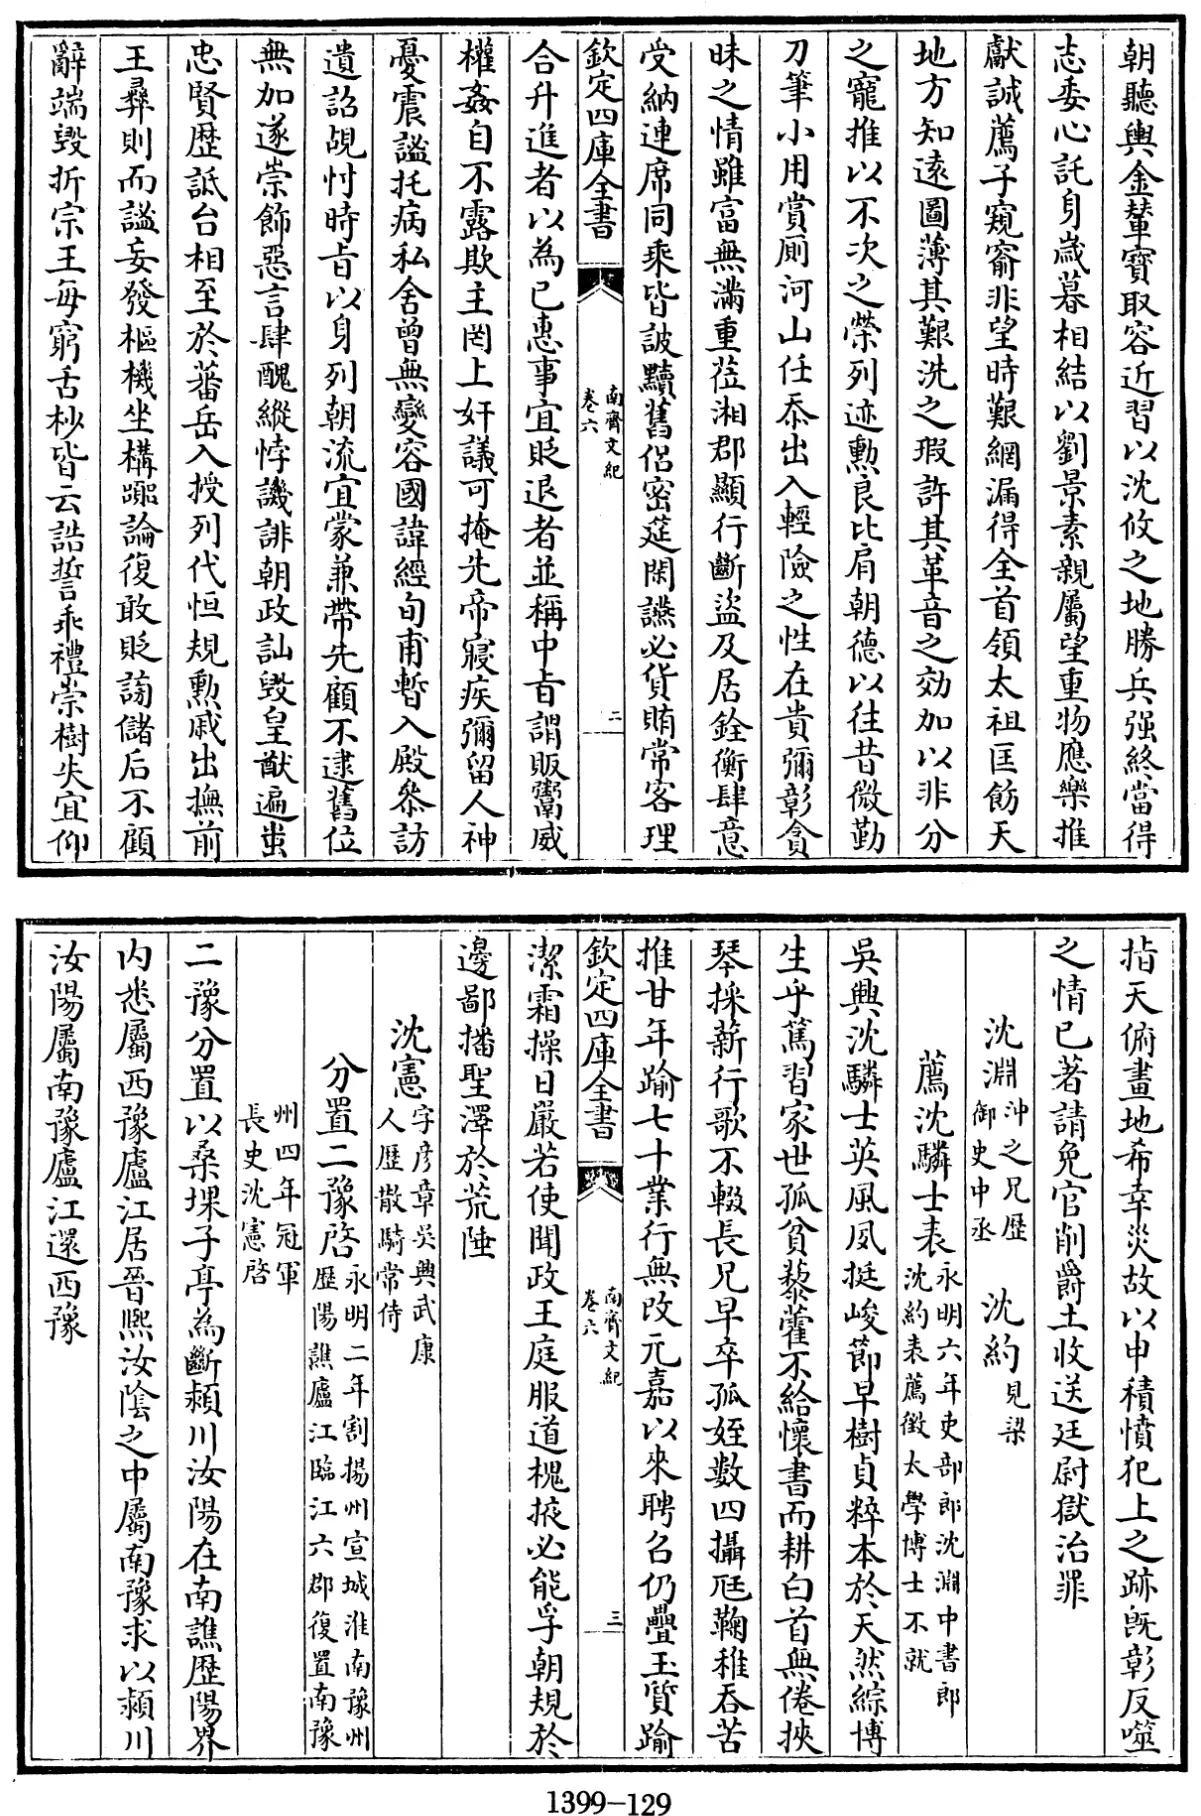 朝聽輿金輦寳取容近習以沈攸之地勝兵强終當得
志委心託身嵗暮相結以劉景素親屬望重物應樂推
獻誠薦子窺窬非望時艱網漏得全首領太祖匡飭天
地方知遠圖薄其艱洗之瑕許其革音之効加以非分
之寵推以不次之榮列迹勲良比肩朝德以往昔微勤
刀筆小用賞厠河山任忝出入輕險之性在貴彌彰貪
昧之情雖富無滿重莅湘郡顯行斷盜及居銓衡肆意
受納連席同乘皆詖黷舊侣密筵閑讌必貨賄常客理
欽定四庫全書 南齊文紀 卷六 二
合升進者以為已惠事宜貶退者並稱中旨謂販鬻威
權姦自不露欺主罔上奸議可掩先帝寢疾彌留人神
憂震謐托病私舍曾無變容國諱經旬甫暫入殿叅訪
遺詔覘忖時旨以身列朝流宜蒙兼帶先顧不逮舊位
無加遂崇飾惡言肆醜縱悖譏誹朝政訕毀皇猷遍蚩
忠賢歴詆台相至於蕃岳入授列代恒規勲戚出撫前
王彞則而謐妄發樞機坐構囂論復敢貶謗儲后不顧
辭端毀折宗王每窮舌杪皆云誥誓乖禮崇樹失宜仰
指天俯畫地希幸災故以申積憤犯上之跡既彰反噬
之情已著請免官削爵土收送廷尉獄治罪
沈淵 沖之兄歴御史中丞 沈約 見梁
薦沈驎士表 永明六年吏部郎沈淵中書郎沈約表薦徵太學博士不就
吳興沈驎士英風夙挺峻節早樹貞粹本於天然綜博
生乎篤習家世孤貧藜藿不給懷書而耕白首無倦挾
琴採薪行歌不輟長兄早卒孤姪數四攝尫鞠稚吞苦
推甘年踰七十業行無改元嘉以來聘召仍疊玉質踰
欽定四庫全書 南齊文紀 卷六 三
潔霜操日嚴若使聞政王庭服道槐掖必能孚朝規於
邊鄙播聖澤於荒陲
沈憲 字彦章吳興武康人歴散騎常侍
分置二豫啓 永明二年割揚州宣城淮南豫州歴陽譙廬江臨江六郡復置南豫
州四年冠軍長史沈憲啓
二豫分置以桑堁子亭為斷潁川汝陽在南譙歴陽界
内悉屬西豫廬江居晉熙汝隂之中屬南豫求以潁川
汝陽屬南豫廬江還西豫
1399—129